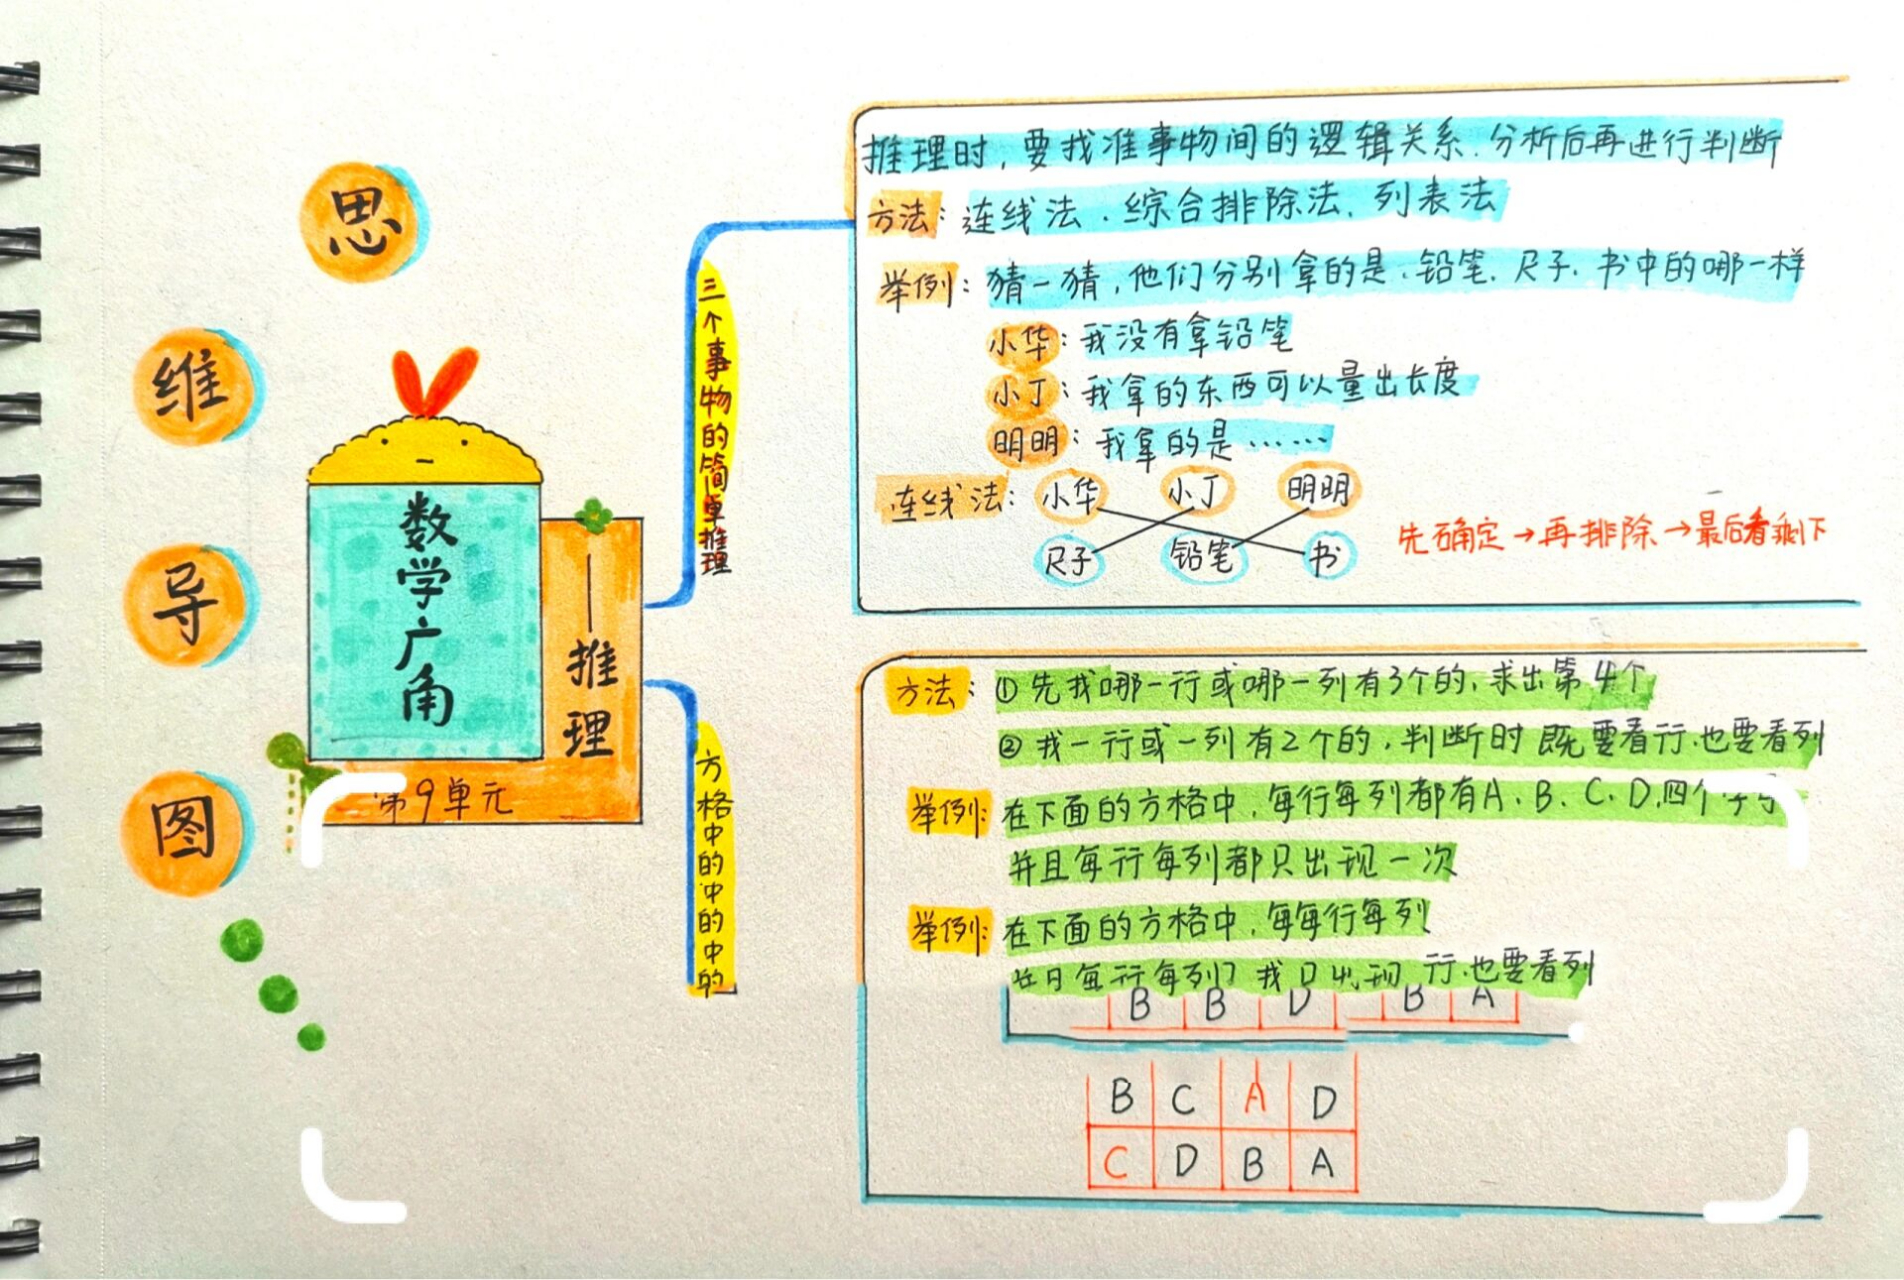 思
维
导
图
数学广角
——推理
第9单元
三个事物的简单推理
推理时,要找准事物间的逻辑关系.分析后再进行判断
方法：连线法、综合排除法、列表法
举例：猜一猜,他们分别拿的是.铅笔、尺子、书中的哪一样
小华：我没有拿铅笔
小丁：我拿的东西可以量出长度
明明：我拿的是……
连线法： 小华 小丁 明明
尺子 铅笔 书
先确定→再排除→最后看剩下
方格中的中的中的
方法：①先找哪一行或哪一列有3个的,求出第4个
②找一行或一列有2个的,判断时既要看行.也要看列
举例：在下面的方格中,每行每列都有A、B、C、D,四个字母
并且每行每列都只出现一次
举例：在下面的方格中,每每行每列
行.也要看列
B B D B A
B C A D
C D B A